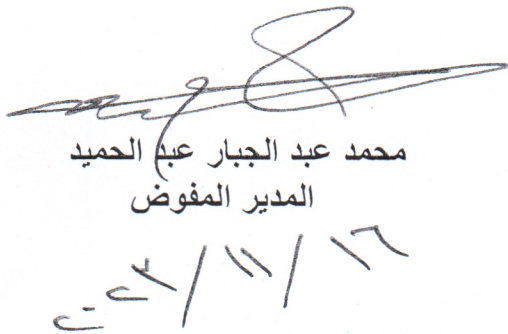 محمد عبد الجبار عبد الحميد
المدير المفوض
١٦/١١/